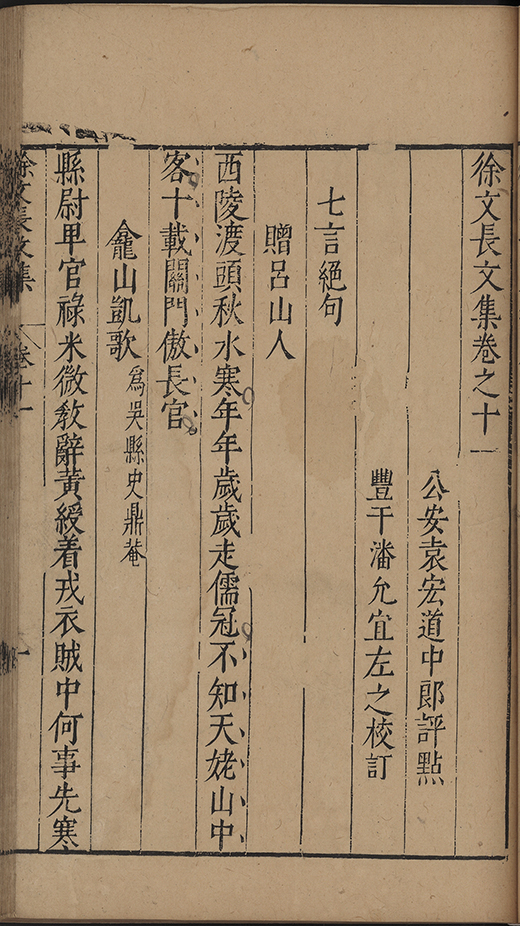 徐文長文集卷之十一
公安袁宏道中郎評點
豐干潘允宜左之校訂
七言絕句
贈呂山人
西陵渡頭秋水寒年年歲歲走儒冠不知天姥山中
客十載關門傲長官
龕山凱歌 爲吳縣史鼎菴
縣尉卑官祿米微敎辭黃綬着戎衣賊中何事先寒
徐文長文集 卷十一 一